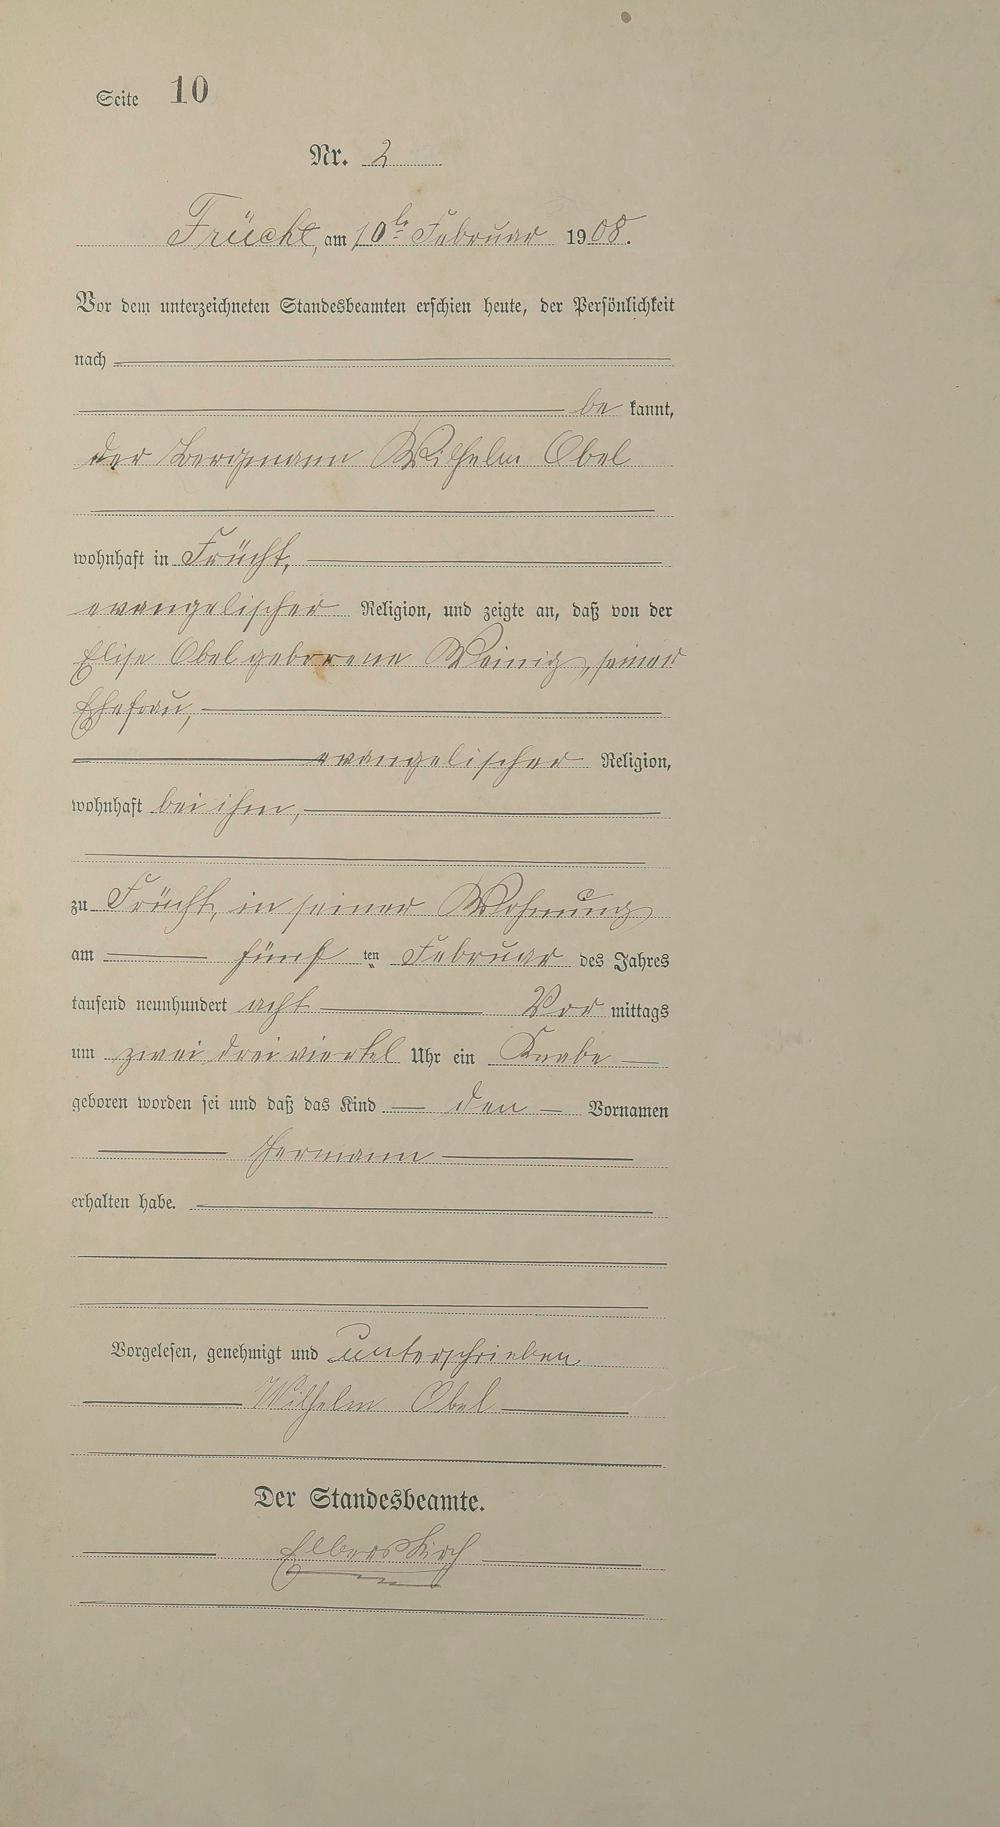 Seite 10
Nr. 2
Frücht, am 10ten Februar 1908.
Vor dem unterzeichneten Standesbeamten erschien heute, der Persönlichkeit
nach
be kannt,
der Bergmann Wilhelm Obel
wohnhaft in Frücht,
evangelischer Religion, und zeigte an, daß von der
Elise Obel geborene Weinig, seiner
Ehefrau,
evangelischer Religion,
wohnhaft bei ihm,
zu Frücht, in seiner Wohnung
am fünf ten Februar des Jahres
tausend neunhundert acht Vor mittags
um zwei dreiviertel Uhr ein Knabe
geboren worden sei und daß das Kind den Vornamen
Hermann
erhalten habe.
Vorgelesen, genehmigt und unterschrieben
Wilhelm Obel
Der Standesbeamte.
Elberskirch